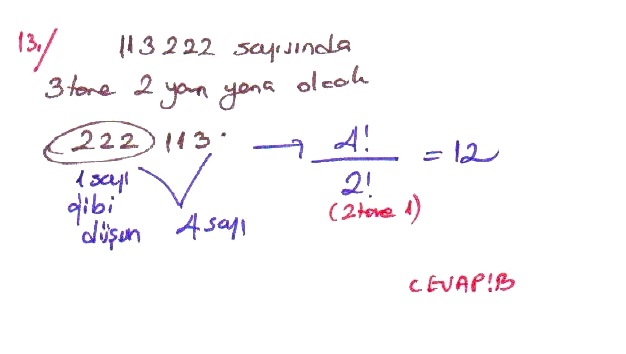 13./ 113222 sayısında
3 tane 2 yan yana olcak
222 113. → 4!/2! = 12
1 sayı
gibi
düşün
4 sayı
(2 tane 1)
CEVAP:B